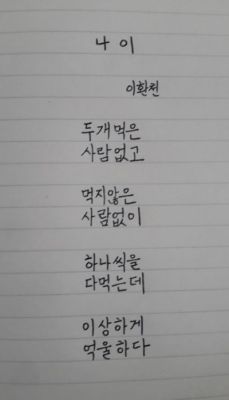 나이
이환천
두개먹은
사람없고
먹지않은
사람없이
하나씩을
다먹는데
이상하게
억울하다